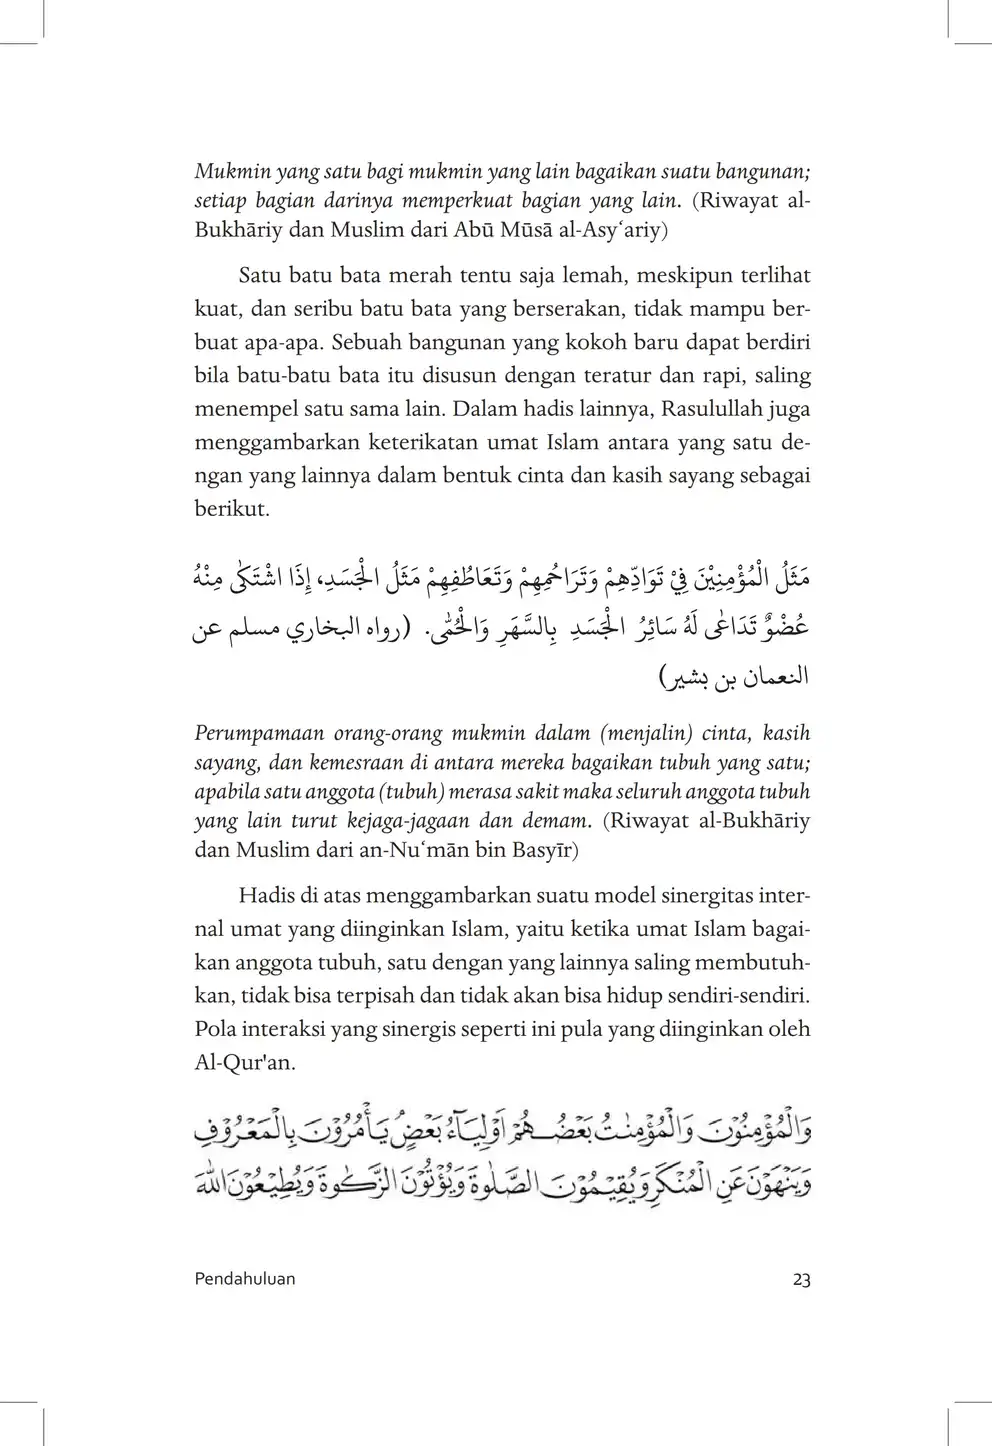 Mukmin yang satu bagi mukmin yang lain bagaikan suatu bangunan;
setiap bagian darinya memperkuat bagian yang lain. (Riwayat al-
Bukhāriy dan Muslim dari Abū Mūsā al-Asy‘ariy)
Satu batu bata merah tentu saja lemah, meskipun terlihat
kuat, dan seribu batu bata yang berserakan, tidak mampu ber-
buat apa-apa. Sebuah bangunan yang kokoh baru dapat berdiri
bila batu-batu bata itu disusun dengan teratur dan rapi, saling
menempel satu sama lain. Dalam hadis lainnya, Rasulullah juga
menggambarkan keterikatan umat Islam antara yang satu de-
ngan yang lainnya dalam bentuk cinta dan kasih sayang sebagai
berikut.
مَثَلُ الْمُؤْمِنِيْنَ فِيْ تَوَادِّهِمْ وَتَرَاحُمِهِمْ وَتَعَاطُفِهِمْ مَثَلُ الْجَسَدِ، إِذَا اشْتَكٰى مِنْهُ
عُضْوٌ تَدَاعٰى لَهُ سَائِرُ الْجَسَدِ بِالسَّهَرِ وَالْحُمّٰى. (رواه البخاري مسلم عن
النعمان بن بشير)
Perumpamaan orang-orang mukmin dalam (menjalin) cinta, kasih
sayang, dan kemesraan di antara mereka bagaikan tubuh yang satu;
apabila satu anggota (tubuh) merasa sakit maka seluruh anggota tubuh
yang lain turut kejaga-jagaan dan demam. (Riwayat al-Bukhāriy
dan Muslim dari an-Nu‘mān bin Basyīr)
Hadis di atas menggambarkan suatu model sinergitas inter-
nal umat yang diinginkan Islam, yaitu ketika umat Islam bagai-
kan anggota tubuh, satu dengan yang lainnya saling membutuh-
kan, tidak bisa terpisah dan tidak akan bisa hidup sendiri-sendiri.
Pola interaksi yang sinergis seperti ini pula yang diinginkan oleh
Al-Qur'an.
وَالْمُؤْمِنُوْنَ وَالْمُؤْمِنٰتُ بَعْضُهُمْ اَوْلِيَاۤءُ بَعْضٍۘ يَأْمُرُوْنَ بِالْمَعْرُوْفِ
وَيَنْهَوْنَ عَنِ الْمُنْكَرِ وَيُقِيْمُوْنَ الصَّلٰوةَ وَيُؤْتُوْنَ الزَّكٰوةَ وَيُطِيْعُوْنَ اللّٰهَ
Pendahuluan 23